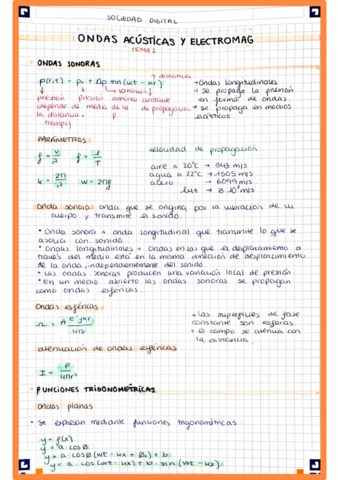 SOCIEDAD DIGITAL
ONDAS ACÚSTICAS Y ELECTROMAG
TEMA 2
• ONDAS SONORAS
p(r,t) = p₀ + Δp sin(wt - kr)
→ distancia
→ variación
presión presión amb. constante
depende de media de la de propagación
la distancia =
tiempo)
→ ondas longitudinales
→ se propaga la presión
en forma de ondas.
→ se propaga en medios
elásticos.
PARÁMETROS
f = v/λ f = 1/T
k = 2π/λ w = 2πf
velocidad de propagación
aire a 20°C → 343 m/s
agua a 22°C → 1505 m/s
acero → 6099 m/s
luz → 3·10⁸ m/s
Onda sonora: onda que se origina por la vibración de un
cuerpo y transmite el sonido.
• Onda sonora → onda longitudinal que transmite lo que se
asocia con sonido.
• Ondas longitudinales → ondas en las que el desplazamiento a
través del medio está en la misma dirección de desplazamiento
de la onda, independientemente del sonido
• Las ondas sonoras producen una variación local de presión
• En un medio abierto las ondas sonoras se propagan
como ondas esféricas.
Ondas esféricas
→ las superficies de fase
constante son esferas
→ el campo se atenúa con
la distancia.
atenuación de ondas esféricas
I = P/4πr²
• FUNCIONES TRIGONOMÉTRICAS
Ondas planas
• Se expresan mediante funciones trigonométricas
y = f(x)
y = a cosθ
y = a · cosθ (wt - kx + θ₀) + b
y = a · cos (wt - kx) + b · sin (wt - kx)